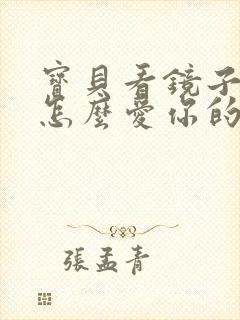 寶貝看鏡子
怎麼愛你的
張孟青